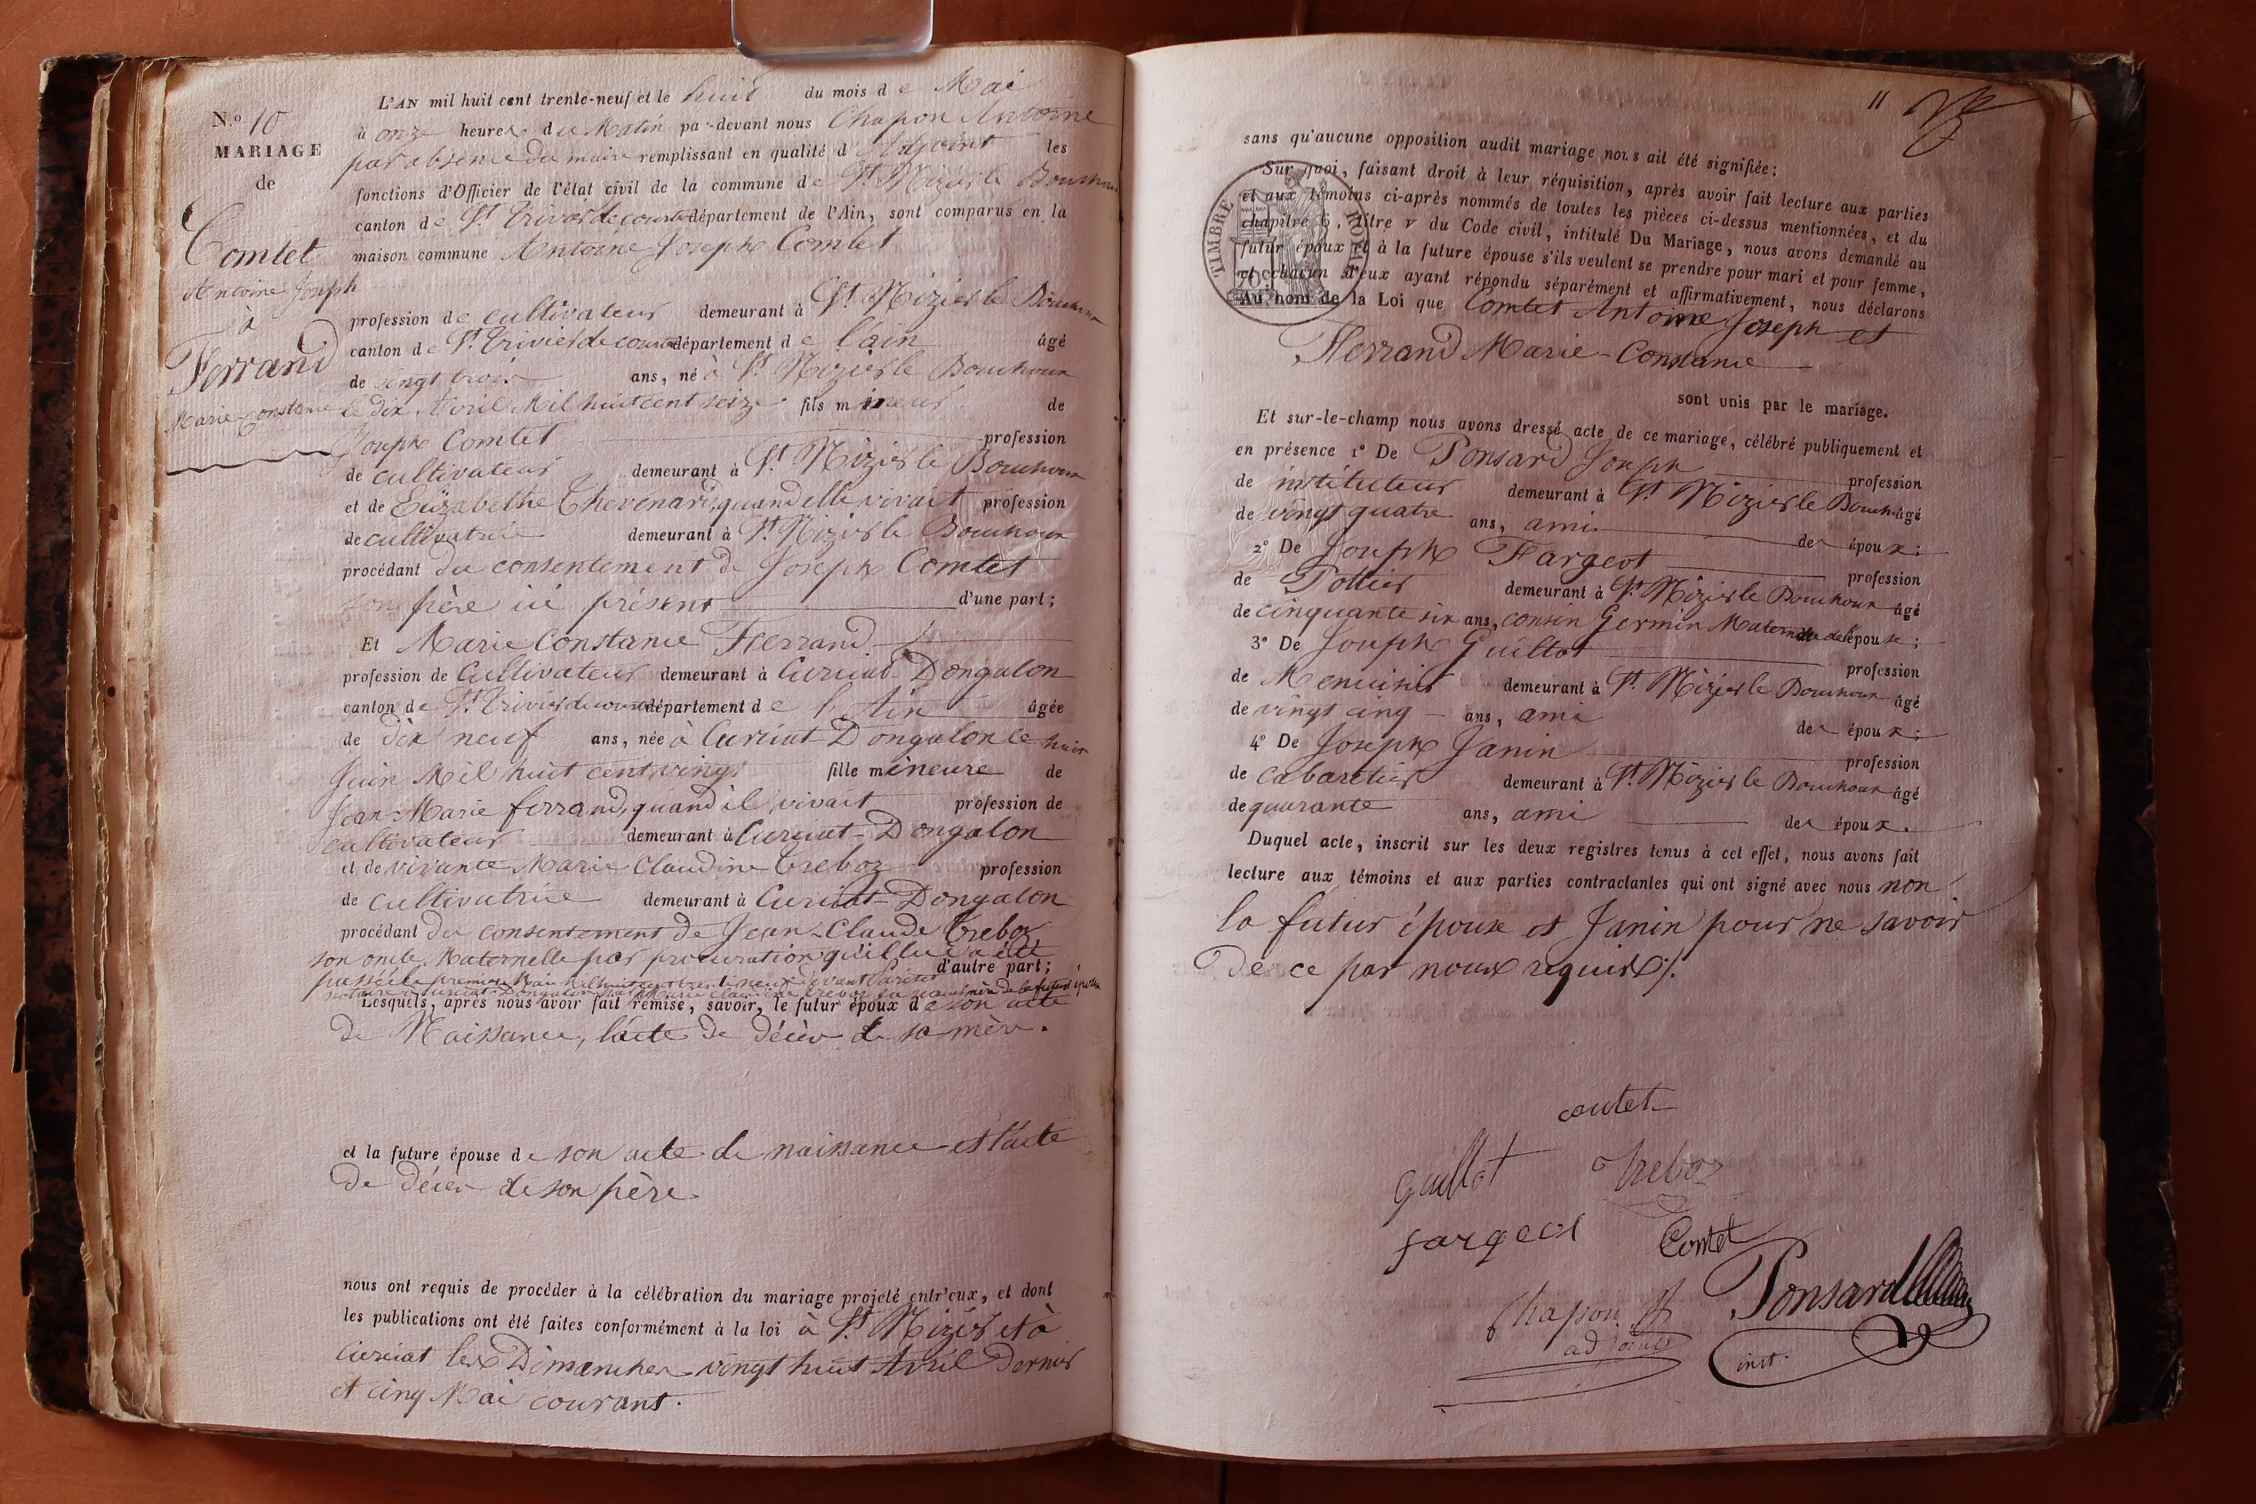 N.o 10
MARIAGE
de
Comtet
Antoine Joseph
à
Ferrand
Marie-Constance
L'AN mil huit cent trente-neuf et le huit du mois de Mai
à onze heures du Matin par-devant nous Chapon Antoine
par absence du maire remplissant en qualité d'Adjoint les
fonctions d'Officier de l'état civil de la commune de St. Nizier le Bouchoux
canton de St. Trivier de courtes département de l'Ain, sont comparus en la
maison commune Antoine Joseph Comtet
profession de cultivateur demeurant à St. Nizier le Bouchoux
canton de St. Trivier de courtes département de l'ain âgé
de vingt trois ans, né à St. Nizier le Bouchoux
le dix Avril Mil huit cent seize fils mineur de
Joseph Comtet profession
de cultivateur demeurant à St. Nizier le Bouchoux
et de Elizabethe Thevenard, quand elle vivait profession
de cultivatrice demeurant à St. Nizier le Bouchoux
procédant du consentement de Joseph Comtet
son père ici présent d'une part;
Et Marie Constance Ferrand
profession de Cultivateur demeurant à Curciat-Dongalon
canton de St. Trivier de courtes département de l'Ain âgée
de dix neuf ans, née à Curciat-Dongalon le huit
Juin Mil huit cent vingt fille mineure de
Jean-Marie ferrand, quand il vivait profession de
cultivateur demeurant à Curciat-Dongalon
et de vivante Marie Claudine Treboz profession
de cultivatrice demeurant à Curciat-Dongalon
procédant du consentement de Jean-Claude Treboz
son oncle Maternelle par procuration qu'il lui a été
passée le premier Mai Mil huit cent trente neuf devant d'autre part;
notaire à Curciat-Dongalon par Marie Claudine Treboz sa mère de la future épouse
Lesquels, après nous avoir fait remise, savoir, le futur époux de son acte
de Naissance, l'acte de décès de sa mère.
et la future épouse de son acte de naissance et l'acte
de décès de son père
nous ont requis de procéder à la célébration du mariage projeté entr'eux, et dont
les publications ont été faites conformément à la loi à St. Nizier et à
curciat les Dimanches vingt huit Avril Dernier
et cinq Mai courant.
11
sans qu'aucune opposition audit mariage nous ait été signifiée;
Sur quoi, faisant droit à leur réquisition, après avoir fait lecture aux parties
et aux témoins ci-après nommés de toutes les pièces ci-dessus mentionnées, et du
chapitre 6, titre v du Code civil, intitulé Du Mariage, nous avons demandé au
futur époux et à la future épouse s'ils veulent se prendre pour mari et pour femme,
et chacun d'eux ayant répondu séparément et affirmativement, nous déclarons
Au nom de la Loi que Comtet Antoine Joseph et
Ferrand Marie-Constance
sont unis par le mariage.
TIMBRE ROYAL
Et sur-le-champ nous avons dressé acte de ce mariage, célébré publiquement et
en présence 1° De Ponsard Joseph profession
de instituteur demeurant à St. Nizier le Bouch. âgé
de vingt quatre ans, ami de l époux;
2° De Joseph Fargeot profession
de Pottier demeurant à St. Nizier le Bouchoux âgé
de cinquante six ans, cousin Germin Maternelle de l'épouse;
3° De Joseph Guillot profession
de Menuisier demeurant à St. Nizier le Bouchoux âgé
de vingt cinq ans, ami de l époux;
4° De Joseph Janin profession
de cabaretier demeurant à St. Nizier le Bouchoux âgé
de quarante ans, ami de l époux.
Duquel acte, inscrit sur les deux registres tenus à cet effet, nous avons fait
lecture aux témoins et aux parties contractantes qui ont signé avec nous non
la futur épouse et Janin pour ne savoir
de ce par nous requis ./.
coutet
Guillot Treboz
fargeot Comtet
Chapon
adjoint
Ponsard
inst.